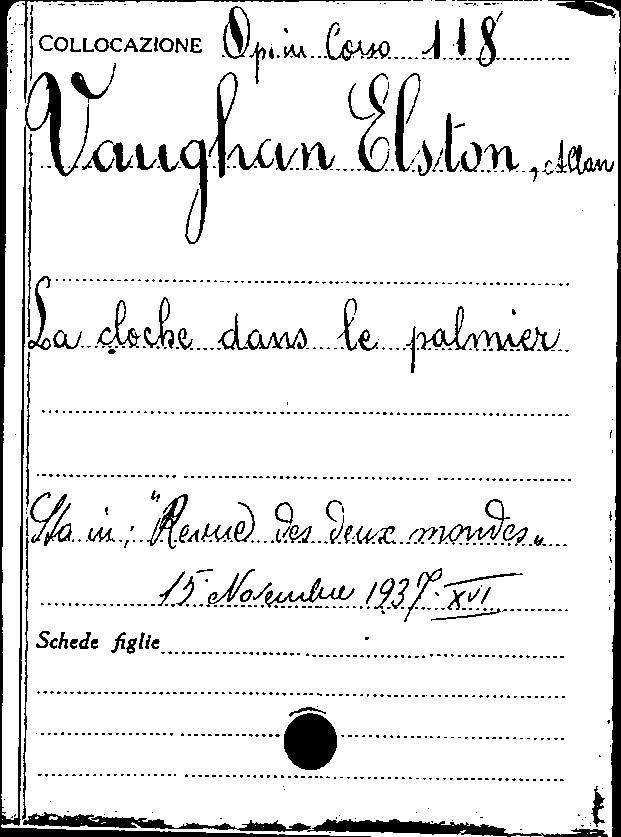 COLLOCAZIONE Op. in Corso 118
Vaughan Elston, Allan
La cloche dans le palmier
Sta in: "Revue des deux mondes„
15 Novembre 1937. XVI
Schede figlie